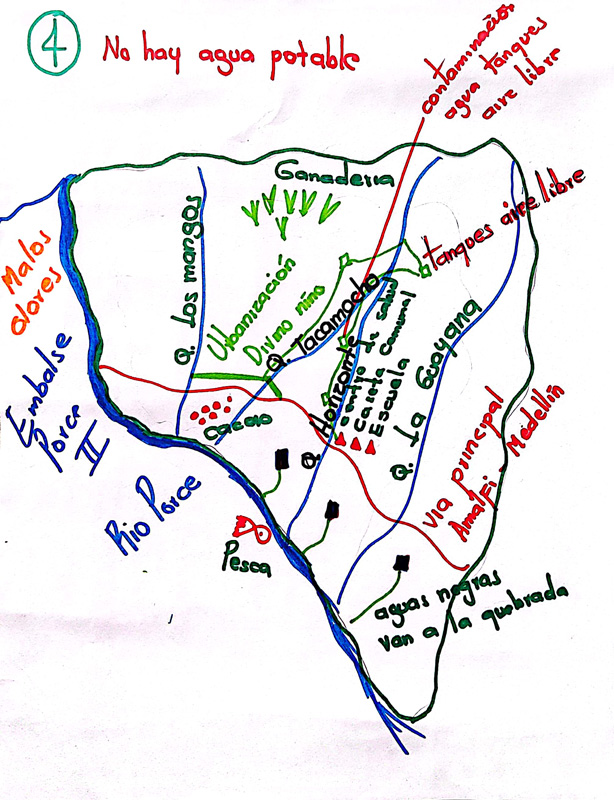 4
No hay agua potable
contaminación
agua tanques
aire libre
Ganaderia
tanques aire libre
Malos
olores
Q. los mangos
Urbanización
Divino niño
Q. Tacamocho
Q. Horizonte
de salud
Caseta Comunal
Escuela
Q. la Guayana
Embalse
Porce
II
Cacao
via principal
Amalfi - Medellín
Rio Porce
Pesca
aguas negras
van a la quebrada